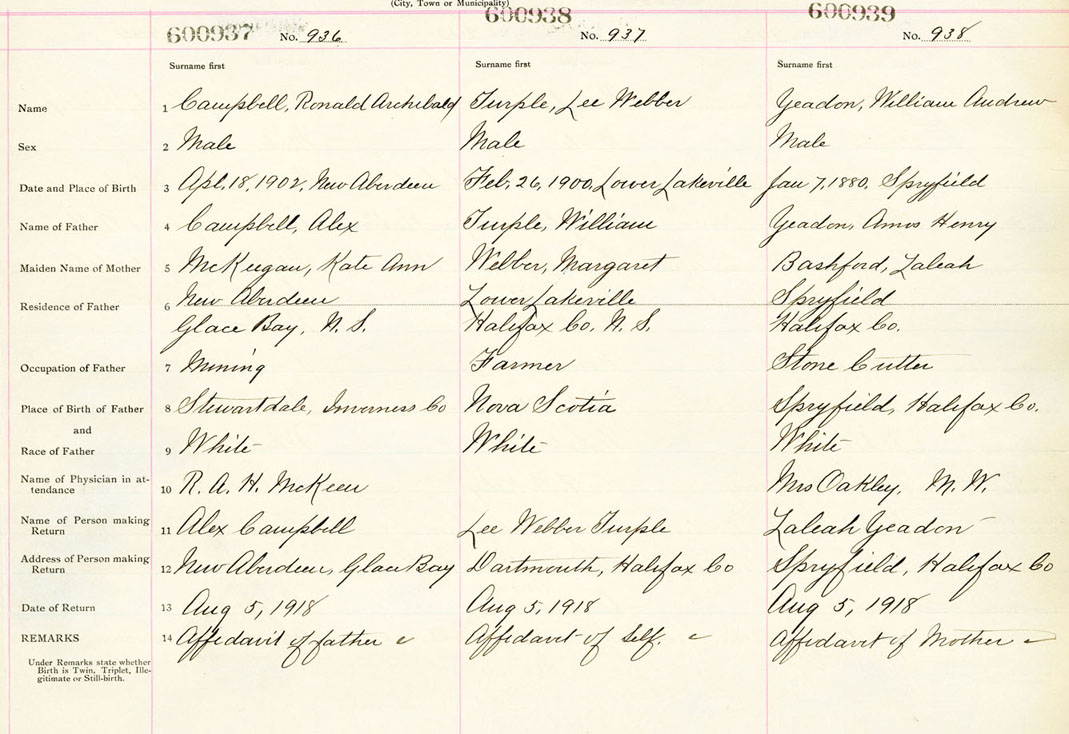 (City, Town or Municipality)
600937 No. 936 600938 No. 937 600939 No. 938
Surname first Surname first Surname first
Name 1 Campbell, Ronald Archibald Turple, Lee Webber Yeadon, William Andrew
Sex 2 Male Male Male
Date and Place of Birth 3 Apl. 18, 1902, New Aberdeen Feb, 26, 1900, Lower Lakeville Jan 7, 1880, Spryfield
Name of Father 4 Campbell, Alex Turple, William Yeadon, Amos Henry
Maiden Name of Mother 5 McKeegan, Kate Ann Webber, Margaret Bashford, Zaleah
Residence of Father 6 New Aberdeen Lower Lakeville Spryfield
Glace Bay, N. S. Halifax Co. N. S. Halifax Co.
Occupation of Father 7 Mining Farmer Stone Cutter
Place of Birth of Father 8 Stewartdale, Inverness Co Nova Scotia Spryfield, Halifax Co.
and
Race of Father 9 White White White
Name of Physician in at-
tendance 10 R. A. H. McKeen Mrs Oakley, M. W.
Name of Person making
Return 11 Alex Campbell Lee Webber Turple Zaleah Yeadon
Address of Person making
Return 12 New Aberdeen, Glace Bay Dartmouth, Halifax Co Spryfield, Halifax Co
Date of Return 13 Aug 5, 1918 Aug 5, 1918 Aug 5, 1918
REMARKS 14 Affidavit of father c Affidavit of Self. c Affidavit of Mother c
Under Remarks state whether
Birth is Twin, Triplet, Ille-
gitimate or Still-birth.